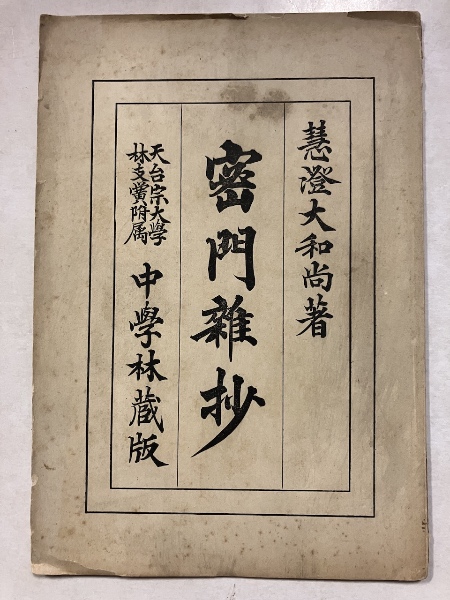 慧澄大和尚著
密門雜抄
天台宗大學
林支黌附属
中學林蔵版